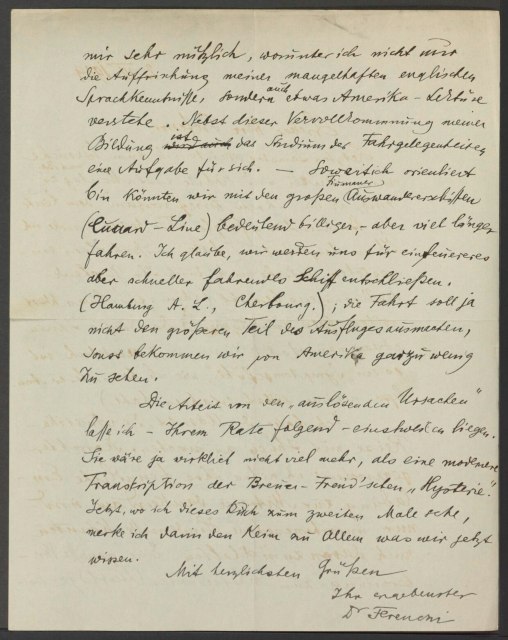 mir sehr nützlich, worunter ich nicht nur
die Auffrischung meiner mangelhaften englischen
Sprachkenntnisse, sondern auch etwas Amerika-Lektüre
verstehe. Nebst dieser Vervollkommnung meiner
Bildung ist das Studium der Fahrgelegenheiten
eine Aufgabe für sich. — Soweit ich orientiert
bin könnten wir mit den großen Fiumaner Auswandererschiffen
(Cunard-Line) bedeutend billiger, - aber viel länger
fahren. Ich glaube, wir werden uns für ein teuereres
aber schneller fahrendes Schiff entschließen.
(Hamburg A. L., Cherbourg.); die Fahrt soll ja
nicht den größeren Teil des Ausfluges ausmachen,
sonst bekommen wir von Amerika gar zu wenig
zu sehen.
Die Arbeit von den „auslösenden Ursachen"
lasse ich - Ihrem Rate folgend - einstweilen liegen.
Sie wäre ja wirklich nicht viel mehr, als eine moderne
Transkription der Breuer-Freud'schen „Hysterie".
Jetzt, wo ich dieses Buch zum zweiten Male sehe,
merke ich dann den Keim zu Allem was wir jetzt
wissen.
Mit herzlichsten Grüßen
Ihr ergebenster
Dr Ferenczi